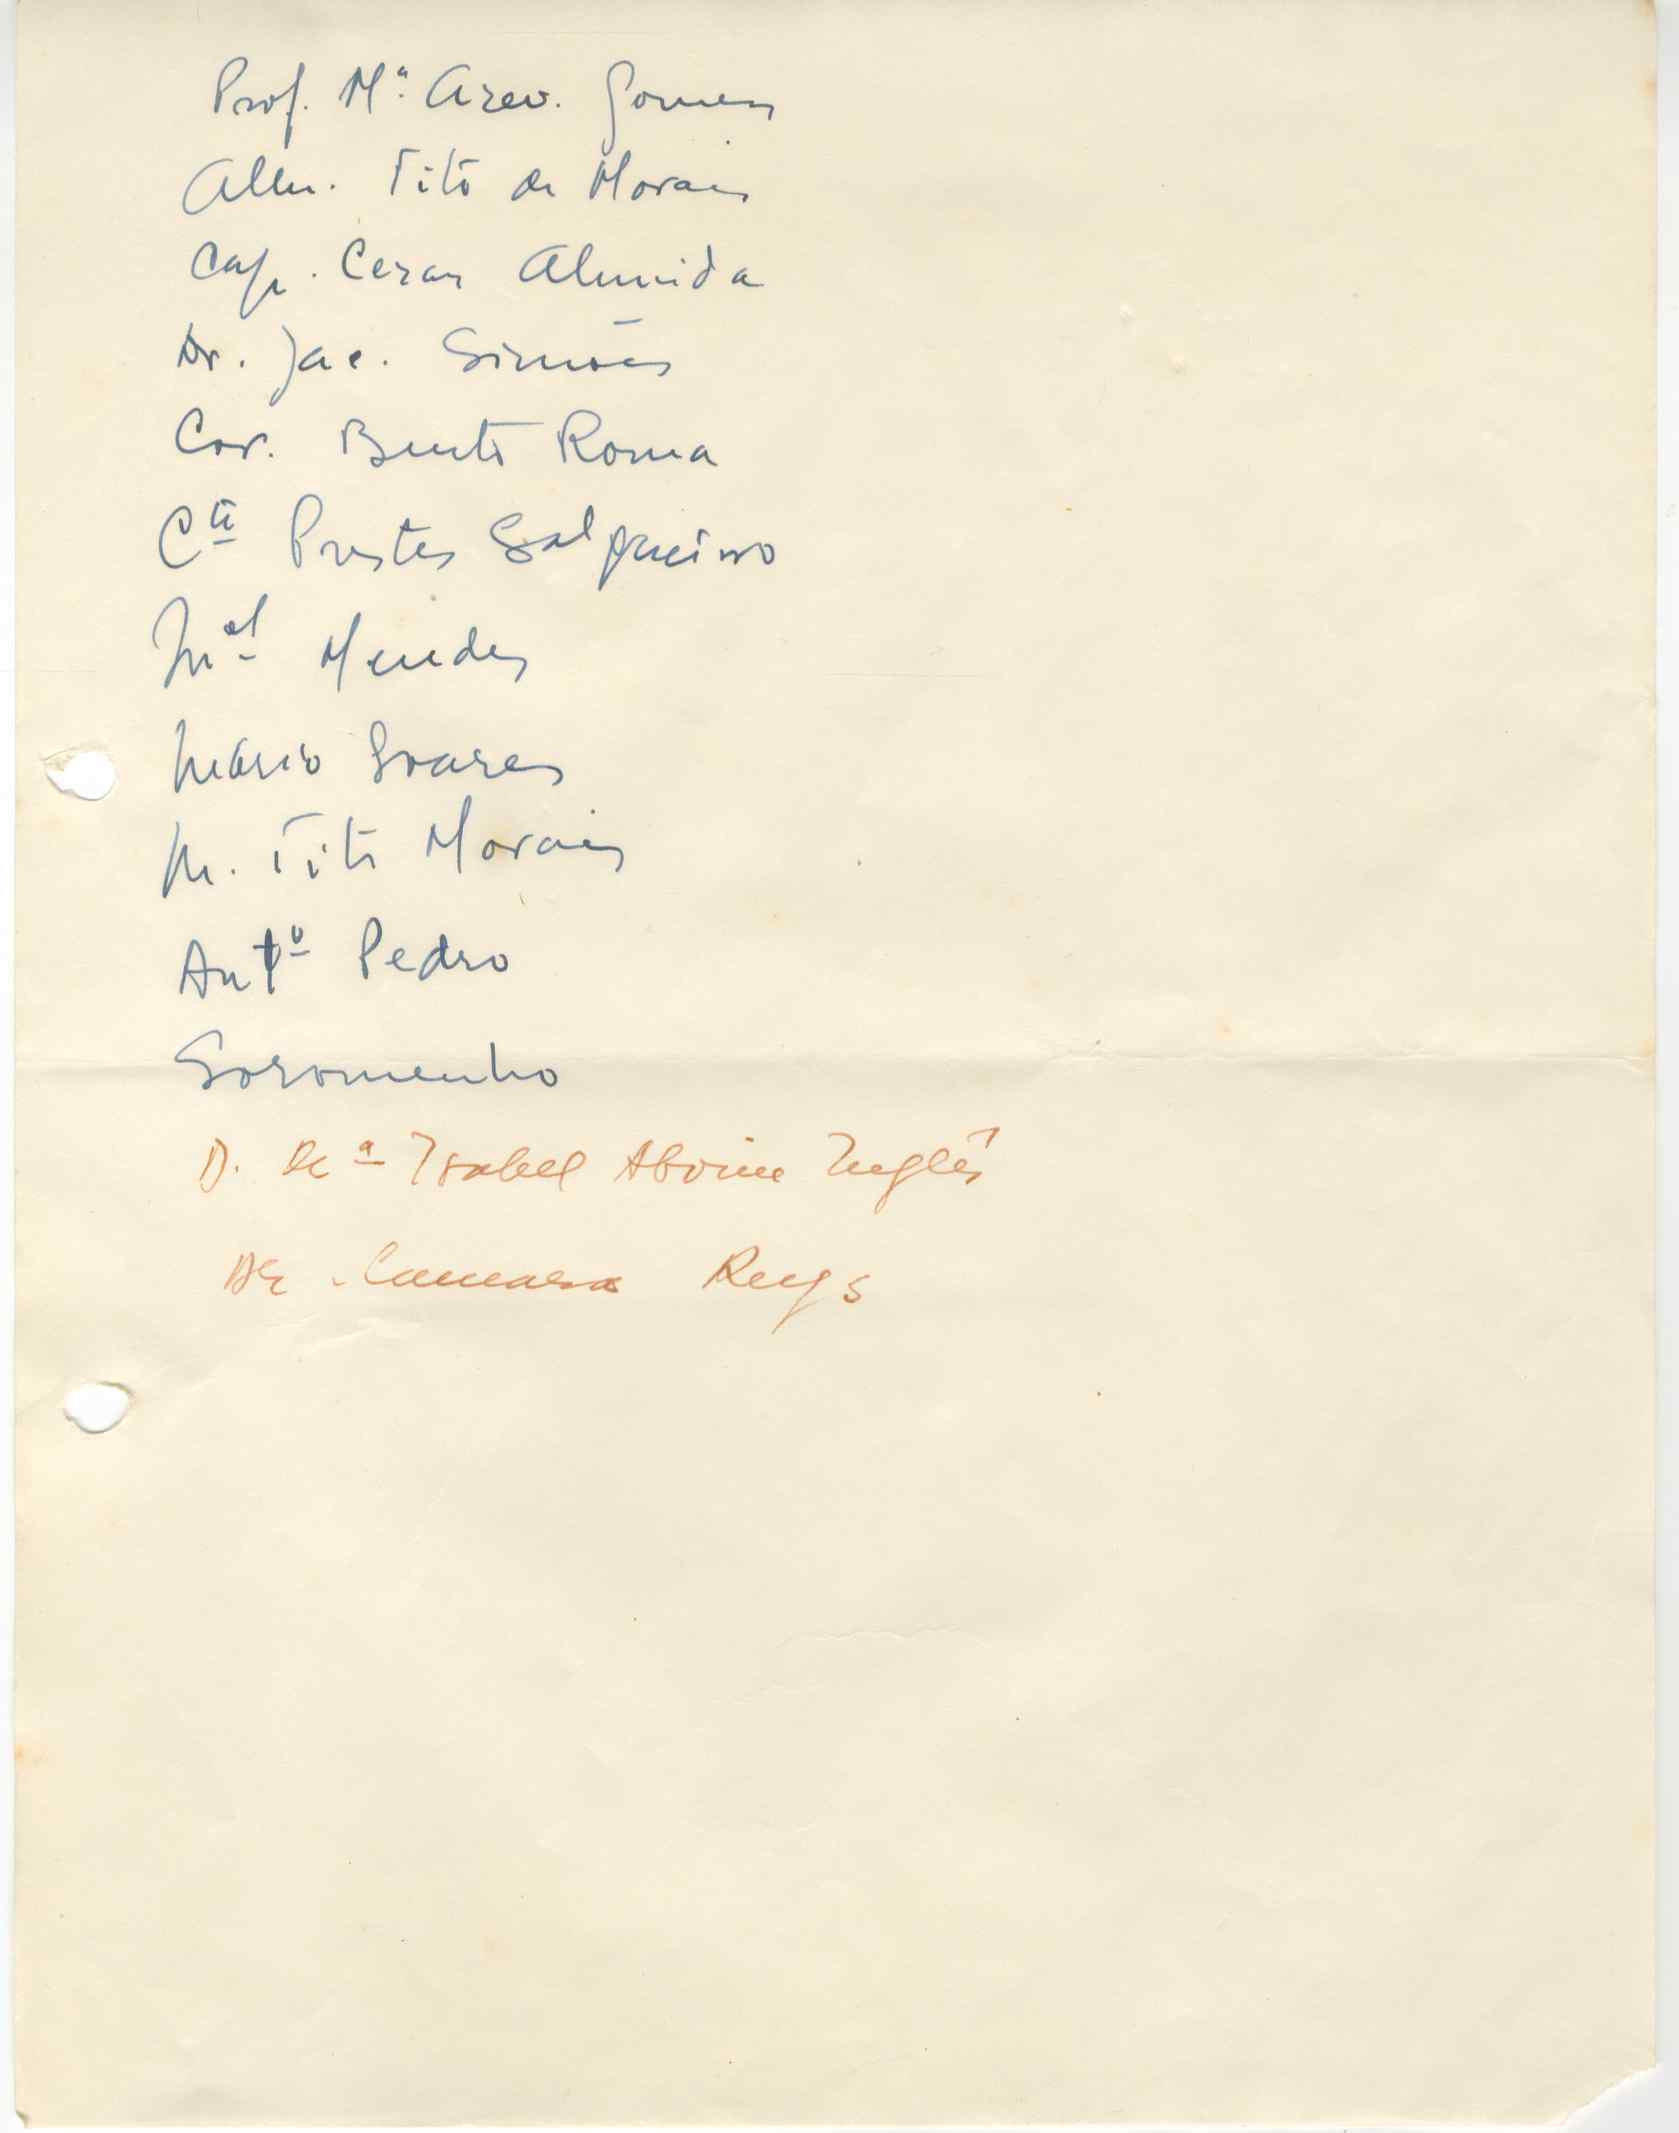 Prof. Mº. Azev. Gomes
Alm. Tito de Morais
Cap. Cezar Almida
Dr. Jac. Simões
Cor. Bento Roma
Cte Prestes Salgueiro
Mel Mendes
Mário Soares
M. Tito Morais
Antº Pedro
Soromenho
D. Mª Isabel Aboim Inglês
Dr. Camara Reys